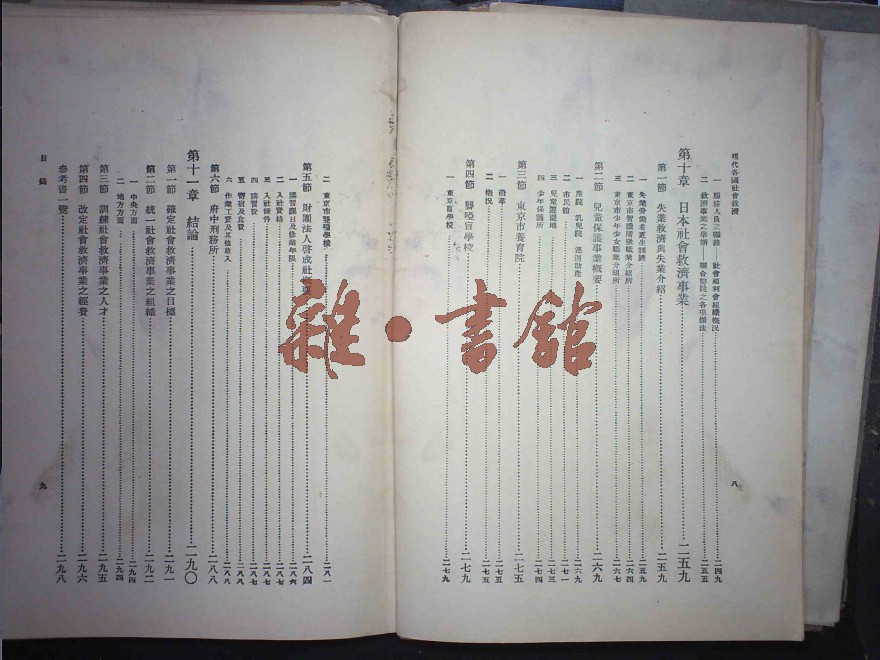 現代各國社會救濟
八
一 服務人員之訓練——社會福利會組織概況 二四九
二 救濟事業之舉辦——聯合醫院之各項辦法 二五五
第十章 日本社會救濟事業 二五九
第一節 失業救濟與失業介紹 二五九
一 失業勞働者更生訓練 二五九
二 東京市智識階級職業介紹所 二六四
三 東京市少年少女職業介紹所 二六七
第二節 兒童保護事業概要 二六九
一 產院 乳兒院 巡迴助產 二六九
二 市民館 二七一
三 兒童遊園地 二七三
四 少年保護所 二七四
第三節 東京市養育院 二七五
一 沿革 二七五
二 概況 二七五
第四節 聾啞盲學校 二七九
一 東京盲學校 二七九
二 東京市聾啞學校 二八一
第五節 財團法人啓成社概要 二八四
一 講習課目及修業年限 二八六
二 入社資格 二八七
三 入社待傳 二八七
四 講習費 二八七
五 寄宿及食費 二八七
六 作業工資及其他收入 二八八
第六節 府中刑務所 二八八
第十一章 結論 二九〇
第一節 確定社會救濟事業之目標 二九一
第二節 統一社會救濟事業之組織 二九二
一 中央方面 二九四
二 地方方面 二九四
第三節 訓練社會救濟事業之人才 二九五
第四節 改定社會救濟事業之經費 二九六
參考書一覽 二九八
目錄
九
雜·書館